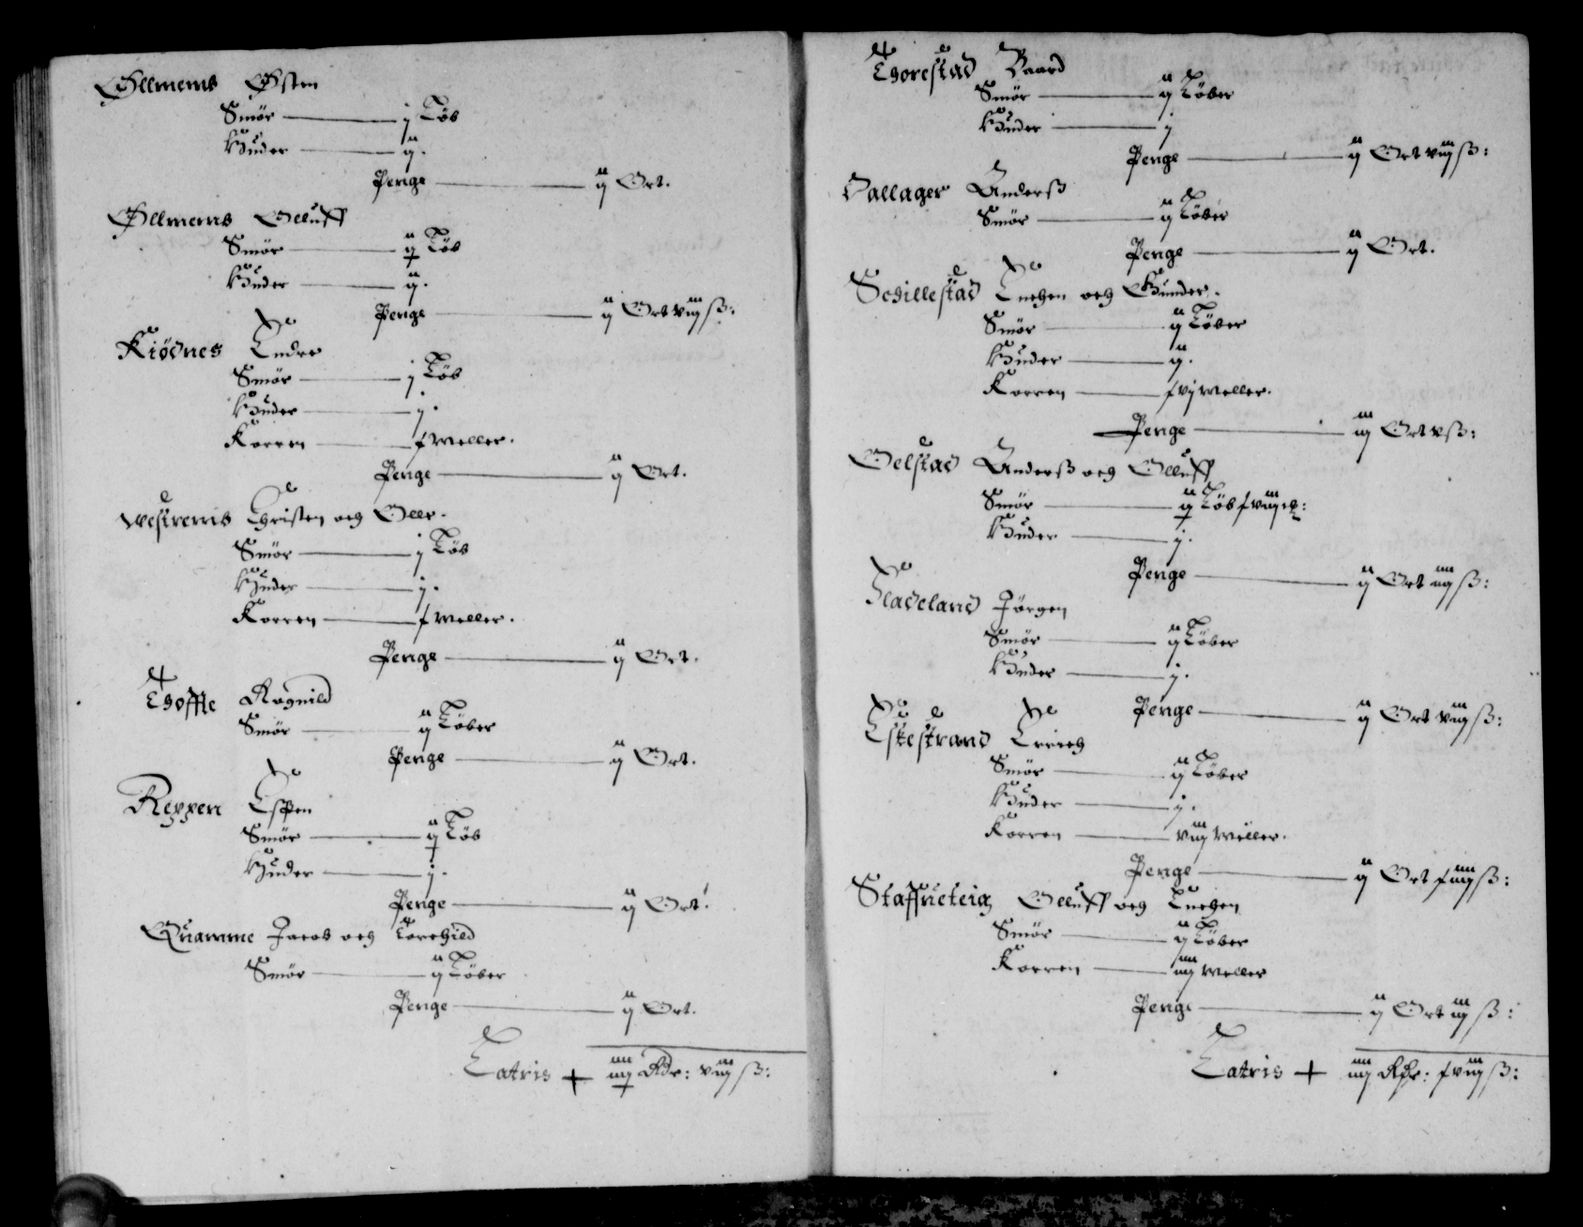 Øllmems Østen
Smör j Løb
Huder ij.
Penge ij Ort.
Øllmems Olluff
Smör ij Løb
Huder ij.
Penge ij Ort viij ß:
Kiödnes Endre
Smör j Løb
Huder j.
Korren x Meller.
Penge ij Ort.
Westrems Christen och Oller.
Smör j Løb
Huder j.
Korren x Meller.
Penge ij Ort.
Thoffte Rognild
Smör ij Løber
Penge ij Ort.
Reppen Espen
Smör ij Løb
Huder j.
Penge ij Ort.
Quamme Jacob och Torchild
Smör ij Løber
Penge ij Ort.
Latris + iiij Rdr: viij ß:
Thorestad Baard
Smör ij Løber
Huder j
Penge ij Ort viij ß:
Vallager Anderß
Smör ij Løber
Penge ij Ort.
Schillestad och Gunder.
Smör ij Løber
Huder ij.
Korren xvj Meller.
Penge iij Ort v ß:
Oelstad Anderß och Olluff
Smör ij Løb xviij
Huder j.
Penge ij Ort iiij ß:
Fladeland Jörgen
Smör ij Løber
Huder j.
Penge ij Ort viij ß:
Eskestrand Erich
Smör ij Løber
Huder j.
Korren viij Meller.
Penge ij Ort xiiij ß:
Staffneteig Olluff och
Smör ij Løber
Korren iiij Meller
Penge ij Ort iij ß:
Latris + iiij Rdr: xviij ß: